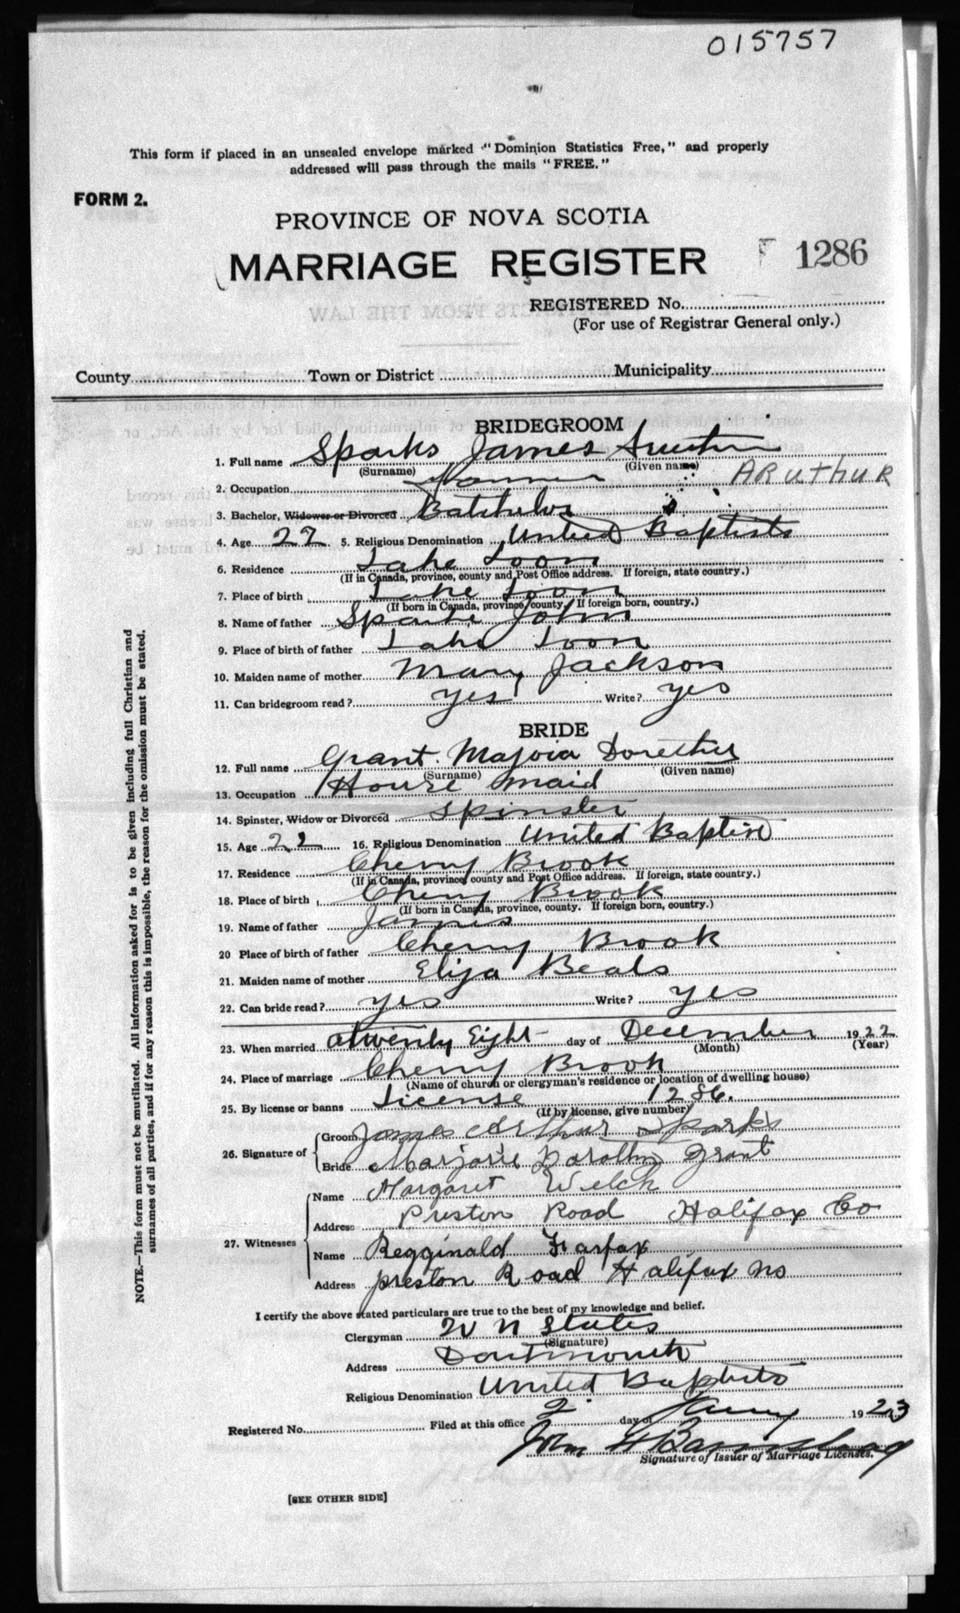 015757
This form if placed in an unsealed envelope marked "Dominion Statistics Free," and properly
addressed will pass through the mails "FREE."
FORM 2.
PROVINCE OF NOVA SCOTIA
MARRIAGE REGISTER 1286
REGISTERED No.
(For use of Registrar General only.)
County Town or District Municipality
BRIDEGROOM
1. Full name Sparks James
(Surname) (Given name)
ARUTHUR
2. Occupation
3. Bachelor, Widower or Divorced Batchelor
4. Age 22 5. Religious Denomination United Baptists
6. Residence Lake Loon
(If in Canada, province, county and Post Office address. If foreign, state country.)
7. Place of birth Lake Loon
(If born in Canada, province, county. If foreign born, country.)
8. Name of father Sparks John
9. Place of birth of father Lake Loon
10. Maiden name of mother Mary Jackson
11. Can bridegroom read? yes Write? yes
BRIDE
12. Full name Grant. Majoia Dorether
(Surname) (Given name)
13. Occupation House maid
14. Spinster, Widow or Divorced Spinster
15. Age 22 16. Religious Denomination United Baptist
17. Residence Cherry Brook
(If in Canada, province, county and Post Office address. If foreign, state country.)
18. Place of birth Cherry Brook
(If born in Canada, province, county. If foreign born, country.)
19. Name of father James
20 Place of birth of father Cherry Brook
21. Maiden name of mother Eliza Beals
22. Can bride read? yes Write? yes
23. When married twenty Eight day of December 1922
(Month) (Year)
24. Place of marriage Cherry Brook
(Name of church or clergyman's residence or location of dwelling house)
25. By license or banns License 1286.
(If by license, give number)
26. Signature of Groom James Arthur Sparks
Bride Marjorie Dorothy Grant
27. Witnesses Name Margaret Welch
Address Preston Road Halifax Co
Name Regginald Farfax
Address preston Road Halifax ns
I certify the above stated particulars are true to the best of my knowledge and belief.
Clergyman W N States
(Signature)
Address Dartmouth
Religious Denomination United Baptists
Registered No. Filed at this office 2 day of Janry 1923
John
Signature of Issuer of Marriage Licenses.
[SEE OTHER SIDE]
NOTE.—This form must not be mutilated. All information asked for is to be given including full Christian and
surnames of all parties, and if for any reason this is impossible, the reason for the omission must be stated.